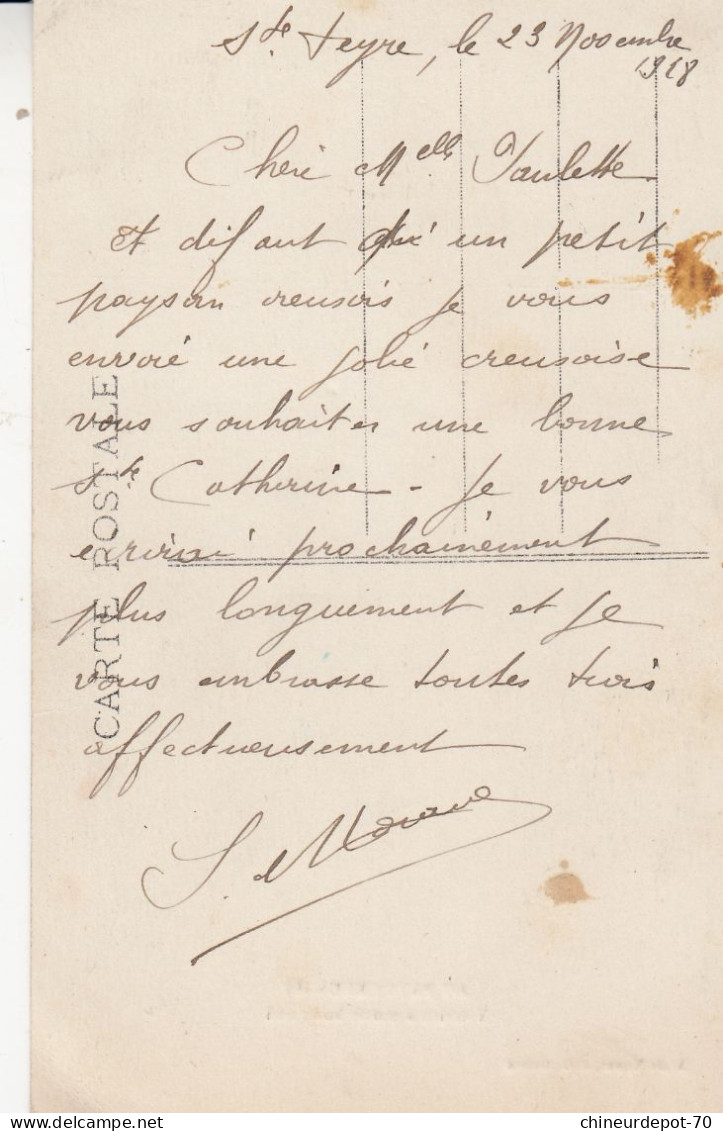 Ste. Feyre, le 23 Novembre
1918
Chère Melle Paulette
Et difaut d'un petit
paysan creusois je vous
envoié une jolie creusoise
vous souhaiter une bonne
Ste Catherine - Je vous
ecrirai prochainement
plus longuement et je
vous embrasse toutes trois
affectueusement
S.
CARTE POSTALE
chineurdepot-70